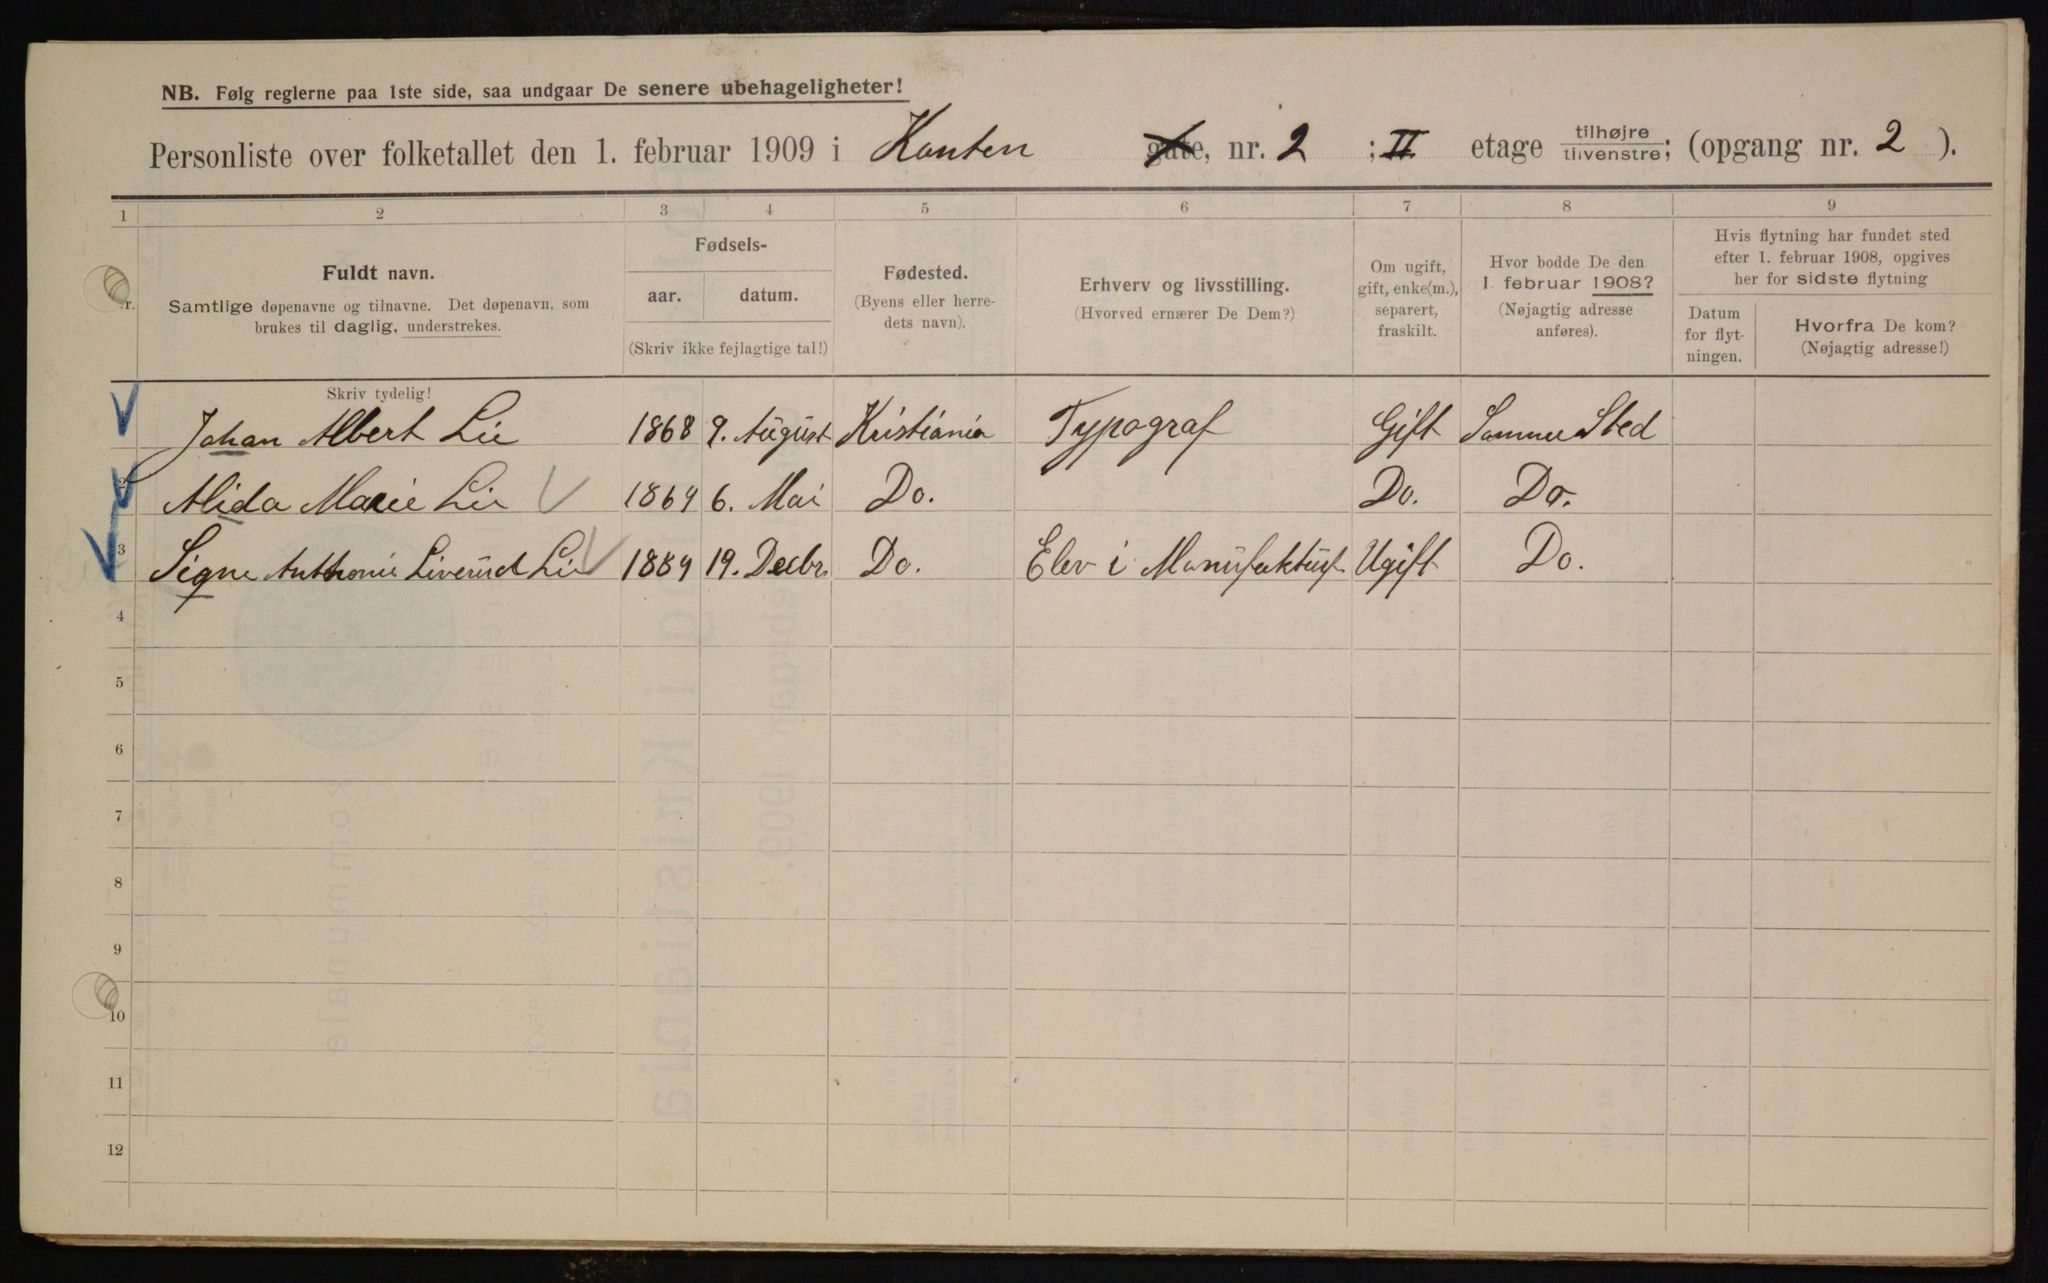 NB. Følg reglerne paa 1ste side, saa undgaar De senere ubehageligheter!
Personliste over folketallet den 1. februar 1909 i Hauten gate, nr. 2 ; II etage tilhøjre tilvenstre; (opgang nr. 2 ).
1 2 3 4 5 6 7 8 9
Nr.
Fuldt navn.
Samtlige døpenavne og tilnavne. Det døpenavn, som
brukes til daglig, understrekes.
Fødsels-
aar. datum.
(Skriv ikke fejlagtige tal!)
Fødested.
(Byens eller herre-
dets navn).
Erhverv og livsstilling.
(Hvorved ernærer De Dem?)
Om ugift,
gift, enke(m.),
separert,
fraskilt.
Hvor bodde De den
1. februar 1908?
(Nøjagtig adresse
anføres).
Hvis flytning har fundet sted
efter 1. februar 1908, opgives
her for sidste flytning
Datum
for flyt-
ningen.
Hvorfra De kom?
(Nøjagtig adresse!)
Skriv tydelig!
Johan Albert Lie 1868 9. August Kristiania Typograf Gift Samme Sted
2 Alida Marie Lie 1869 6. Mai Do. Do. Do.
3 Signe Anthonie Liverud Lie 1889 19. Decbr. Do. Elev i Manufakturf. Ugift Do.
4
5
6
7
8
9
10
11
12